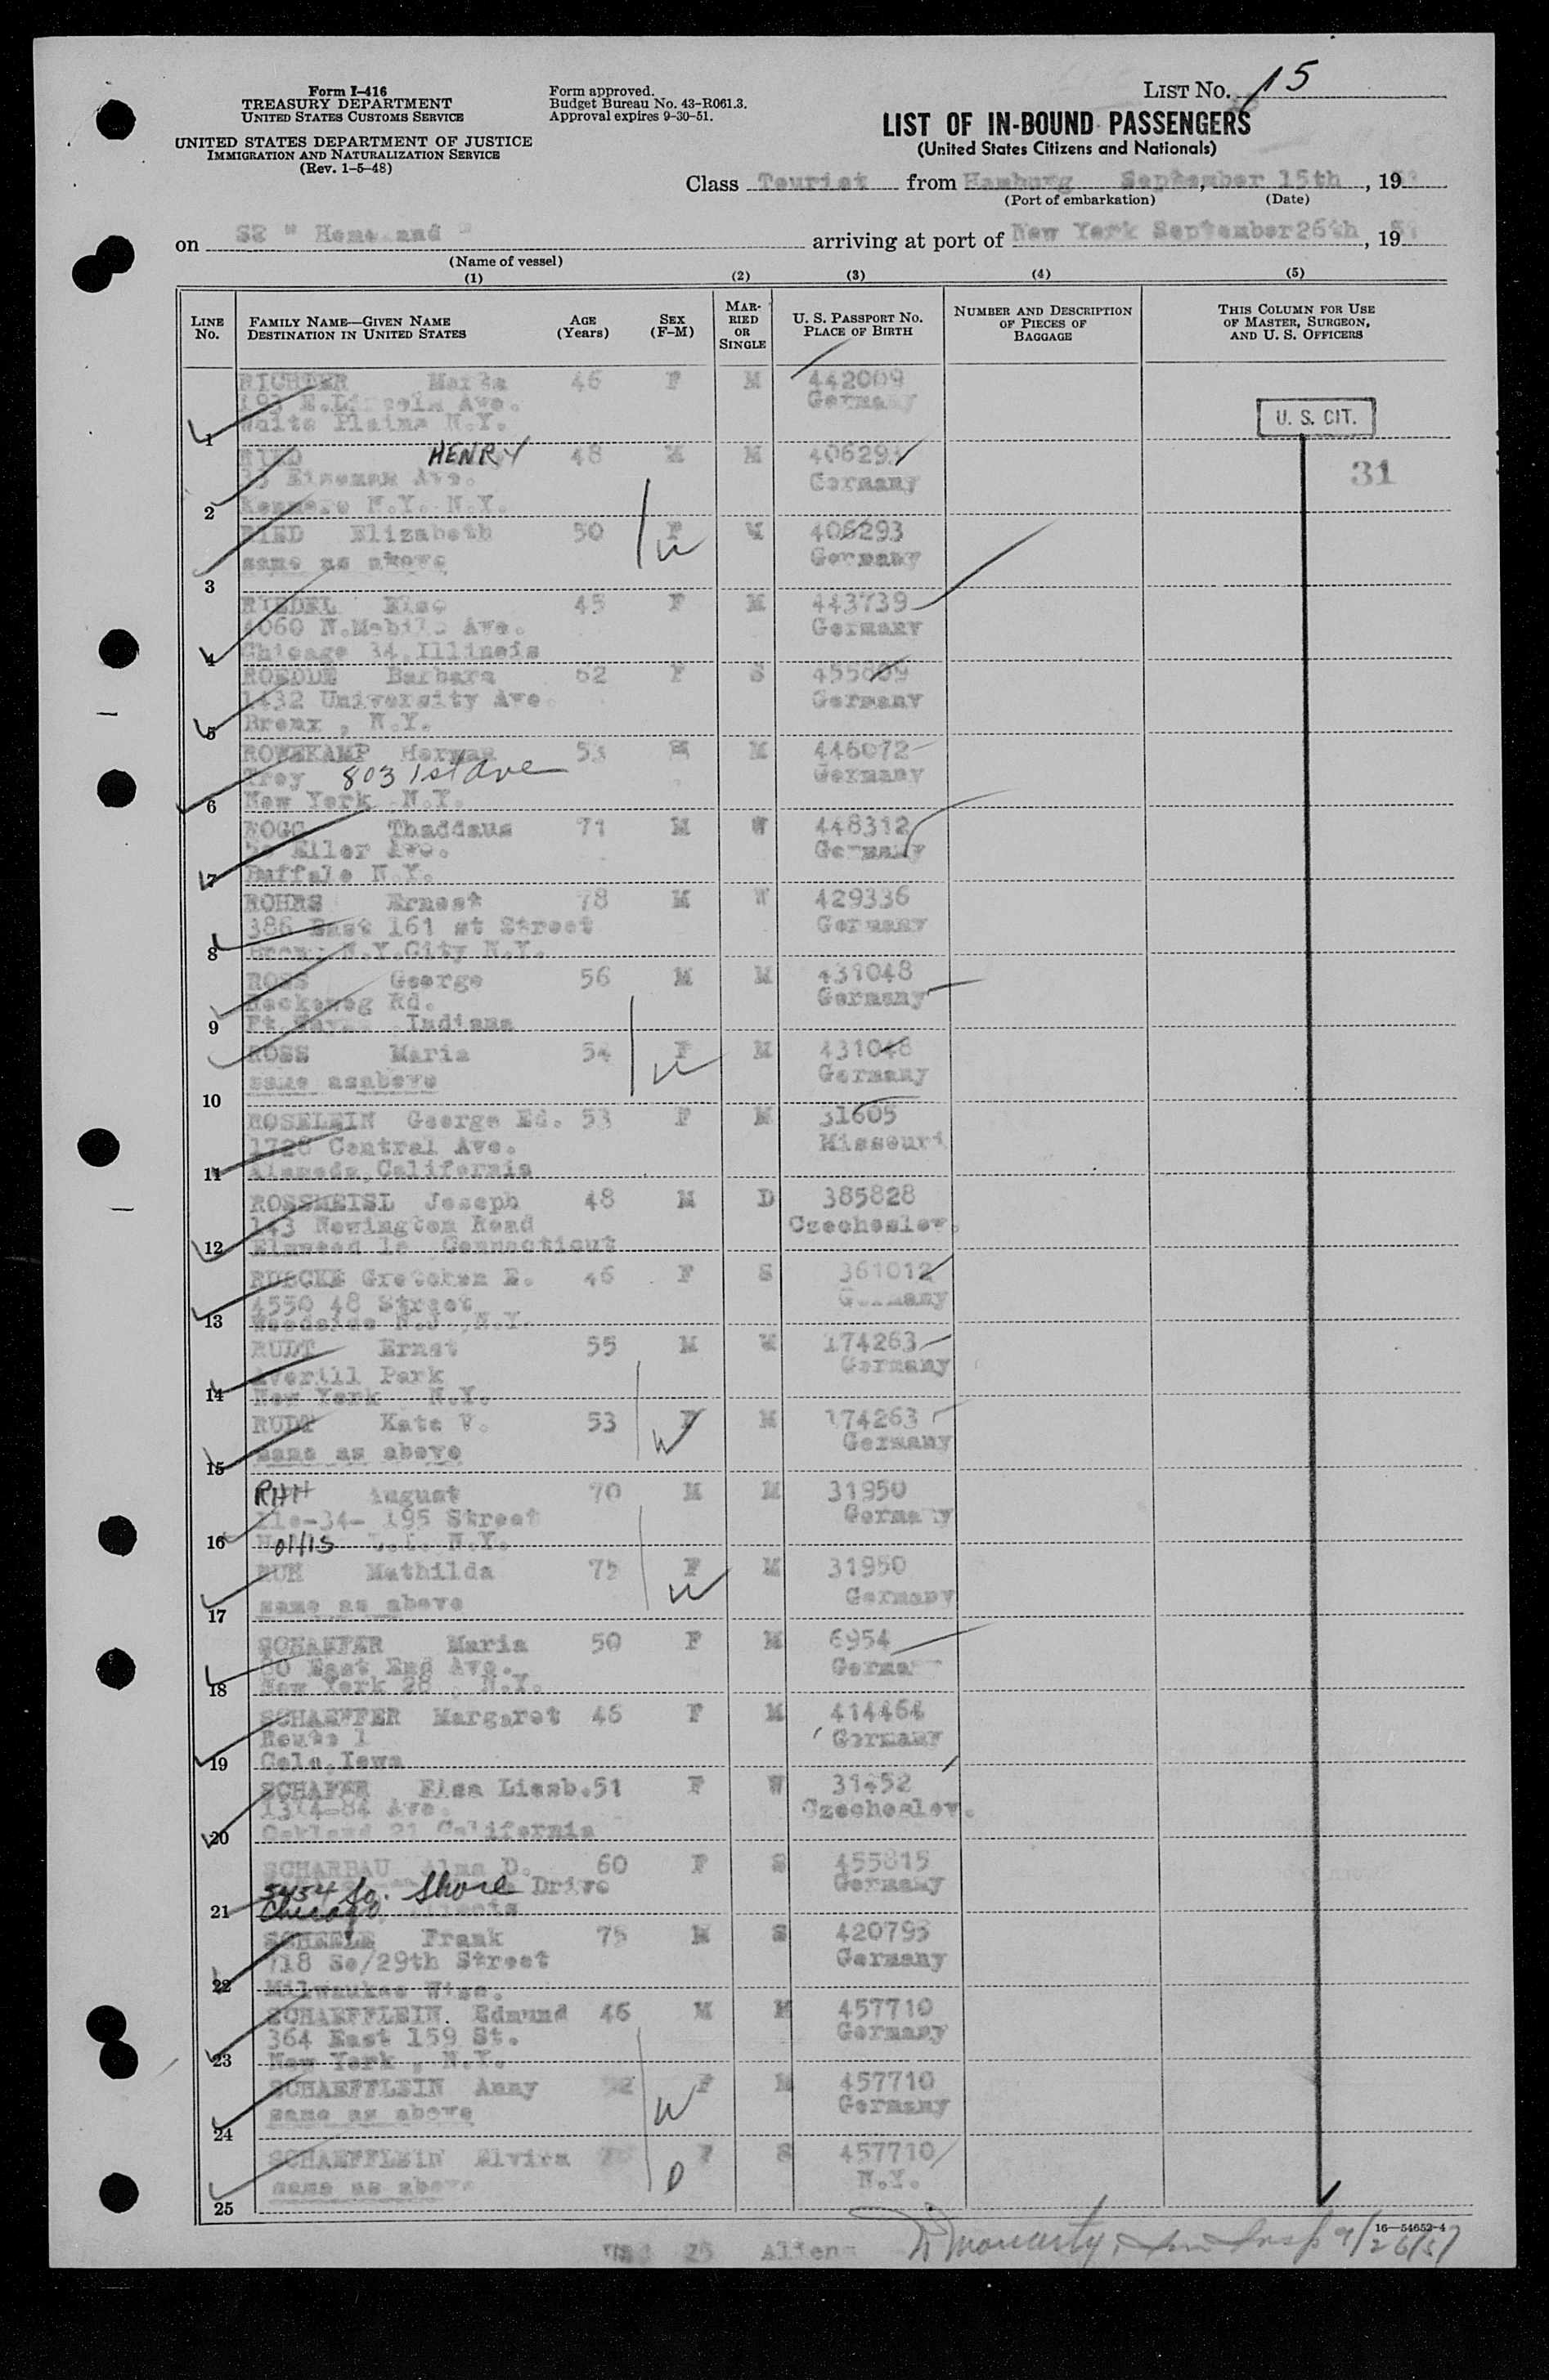 Form I-416
TREASURY DEPARTMENT
UNITED STATES CUSTOMS SERVICE
UNITED STATES DEPARTMENT OF JUSTICE
IMMIGRATION AND NATURALIZATION SERVICE
(Rev. 1-5-48)
Form approved.
Budget Bureau No. 43-R061.3.
Approval expires 9-30-51.
LIST NO. 15
LIST OF IN-BOUND PASSENGERS
(United States Citizens and Nationals)
Class Tourist from Hamburg September 15th, 19
(Port of embarkation) (Date)
on SS " Homeland " arriving at port of New York September 26th, 19
(Name of vessel)
(1) (2) (3) (4) (5)
LINE NO.
FAMILY NAME—GIVEN NAME
DESTINATION IN UNITED STATES
AGE (Years)
SEX (F-M)
MARRIED OR SINGLE
U. S. PASSPORT NO.
PLACE OF BIRTH
NUMBER AND DESCRIPTION OF PIECES OF BAGGAGE
THIS COLUMN FOR USE OF MASTER, SURGEON, AND U. S. OFFICERS
RICHTER Maria 46 F M 442009
193 E.Lincoln Ave. Germany
1 White Plains N.Y.
U. S. CIT.
31
RIED HENRY 48 M M 406293
Ave. Germany
2 Kenmore N.Y. N.Y.
RIED Elizabeth 50 F M 406293
3 same as above Germany
W
RIEDEL Else 45 F M 443739
4060 N.Mobile Ave. Germany
4 Chicago 34,Illinois
ROEDDE Barbara 62 F S 455809
1432 University Ave. Germany
5 Bronx , N.Y.
ROWEKAMP Herman 53 M M 446072
Troy 803 1st Ave Germany
6 New York N.Y.
ROGG Thaddaus 71 M W 448312
Eller Ave. Germany
7 Buffalo N.Y.
ROHRS Ernest 78 M W 429336
386 East 161 st Street Germany
8 Bronx N.Y.City N.Y.
ROSS George 56 M M 431048
Rd. Germany
9 Ft Wayne Indiana
ROSS Maria 54 F M 431048
10 same asabove Germany
W
ROSELEIN George Ed. 53 F M 31605
1728 Central Ave. Missouri
11 Alameda,California
ROSSMEISL Joseph 48 M D 385828
143 Newington Road Czechoslov.
12 Elmwood Connecticut
Gretchen E. 46 F S 361012
4550 48 Street Germany
13 Woodside
RUDT Ernst 55 M M 174263
Averill Park Germany
14 New York N.Y.
RUDT Kate V. 53 F M 174263
15 same as above Germany
W
August 70 M M 31950
195 Street Germany
16 Hollis L.I. N.Y.
RUH Mathilda F M 31950
17 same as above Germany
W
SCHAEFER Maria 50 F M 6954
East End Ave. Germany
18 New York 28 , N.Y.
SCHAEFFER Margaret 46 F M 414464
Route 1 Germany
19 Colo,Iowa
SCHAFER Elsa Liesb. 51 F W 31452
1314-84 Ave. Czechoslov.
20 Oakland 21 California
SCHARBAU Alma D. 60 F S 455815
5454 So. Shore Drive Germany
21 Chicago
SCHEELE Frank 75 M S 420793
718 So/29th Street Germany
22 Milwaukee Wisc.
SCHAEFFLEIN Edmund 46 M M 457710
364 East 159 St. Germany
23 New York , N.Y.
SCHAEFFLEIN Anny F M 457710
24 same as above Germany
W
SCHAEFFLEIN Elvira F S 457710
25 same as above N.Y.
D
16—54652-4
25 Aliens
Moriarty, Imm Insp 9/26/51